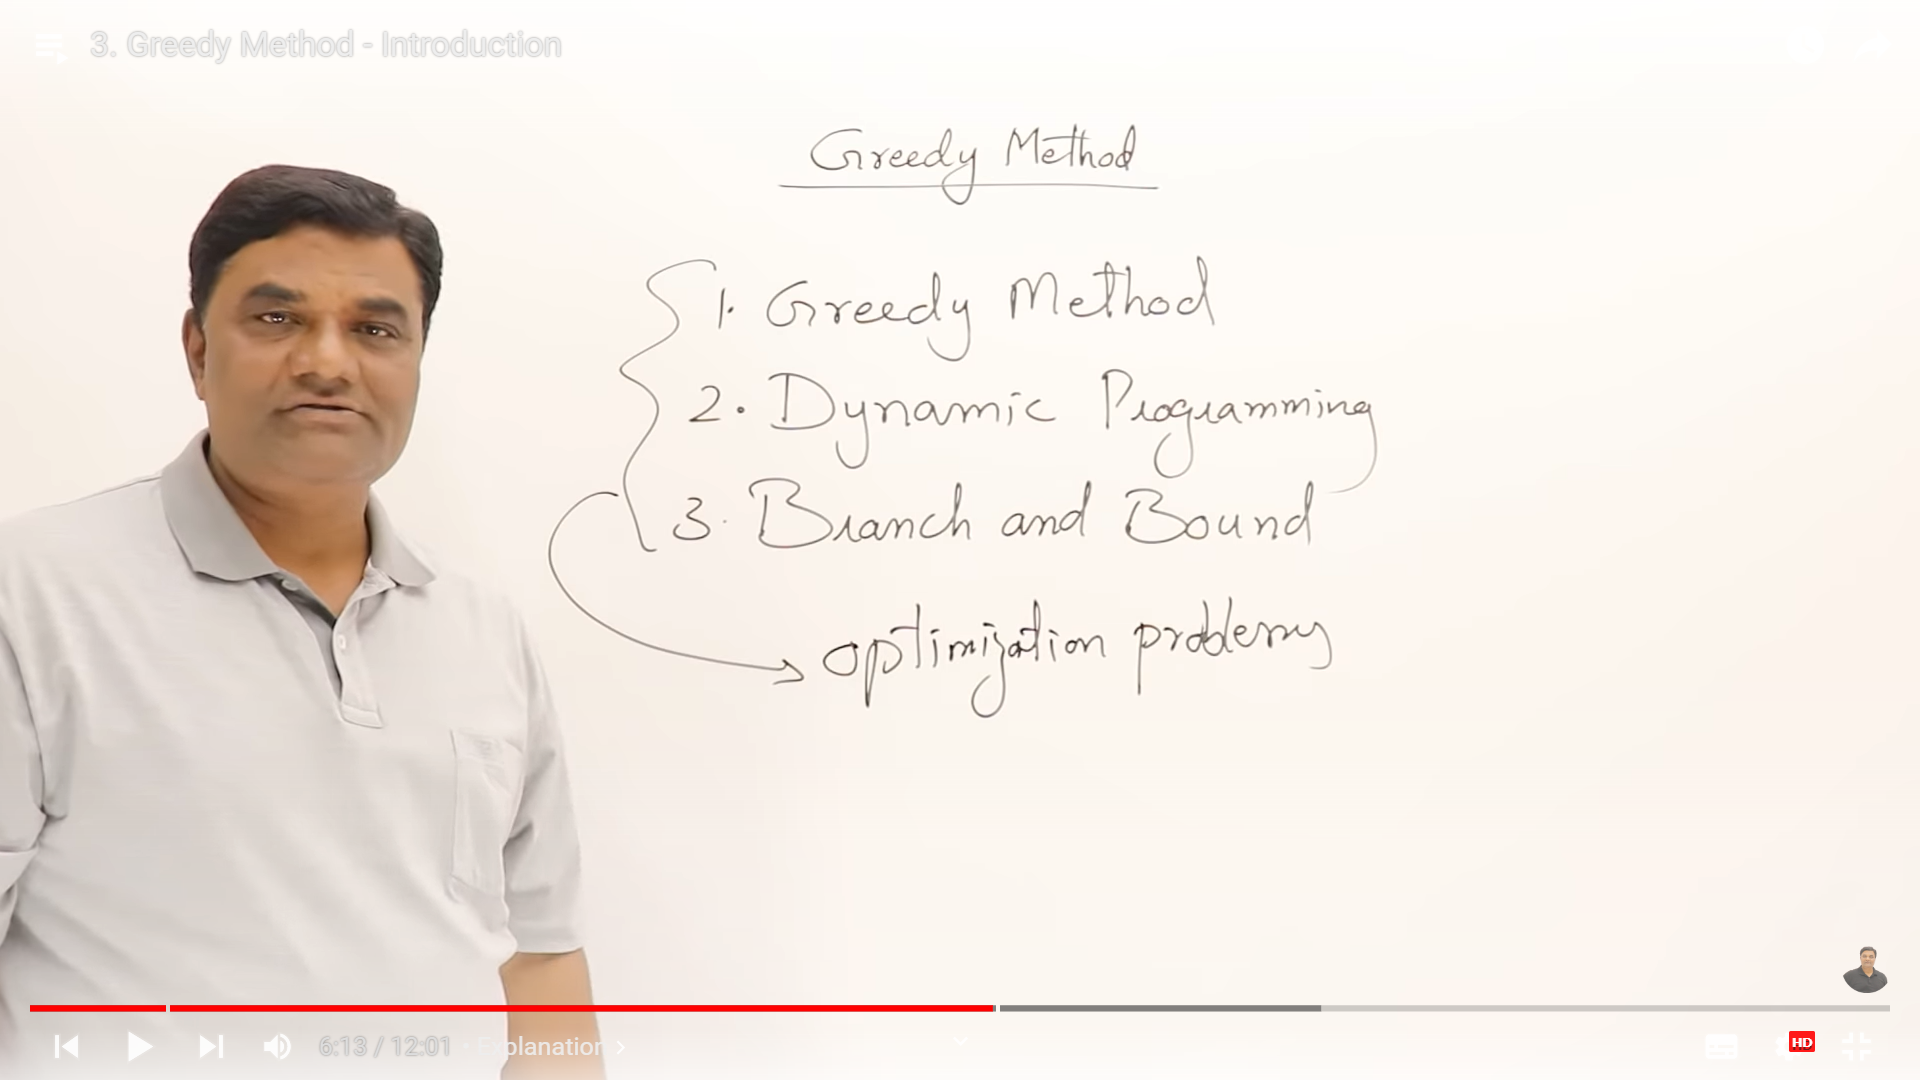 3. Greedy Method - Introduction
Greedy Method
1. Greedy Method
2. Dynamic Programming
3. Branch and Bound
optimization problems
6:13 / 12:01 • Explanation
HD